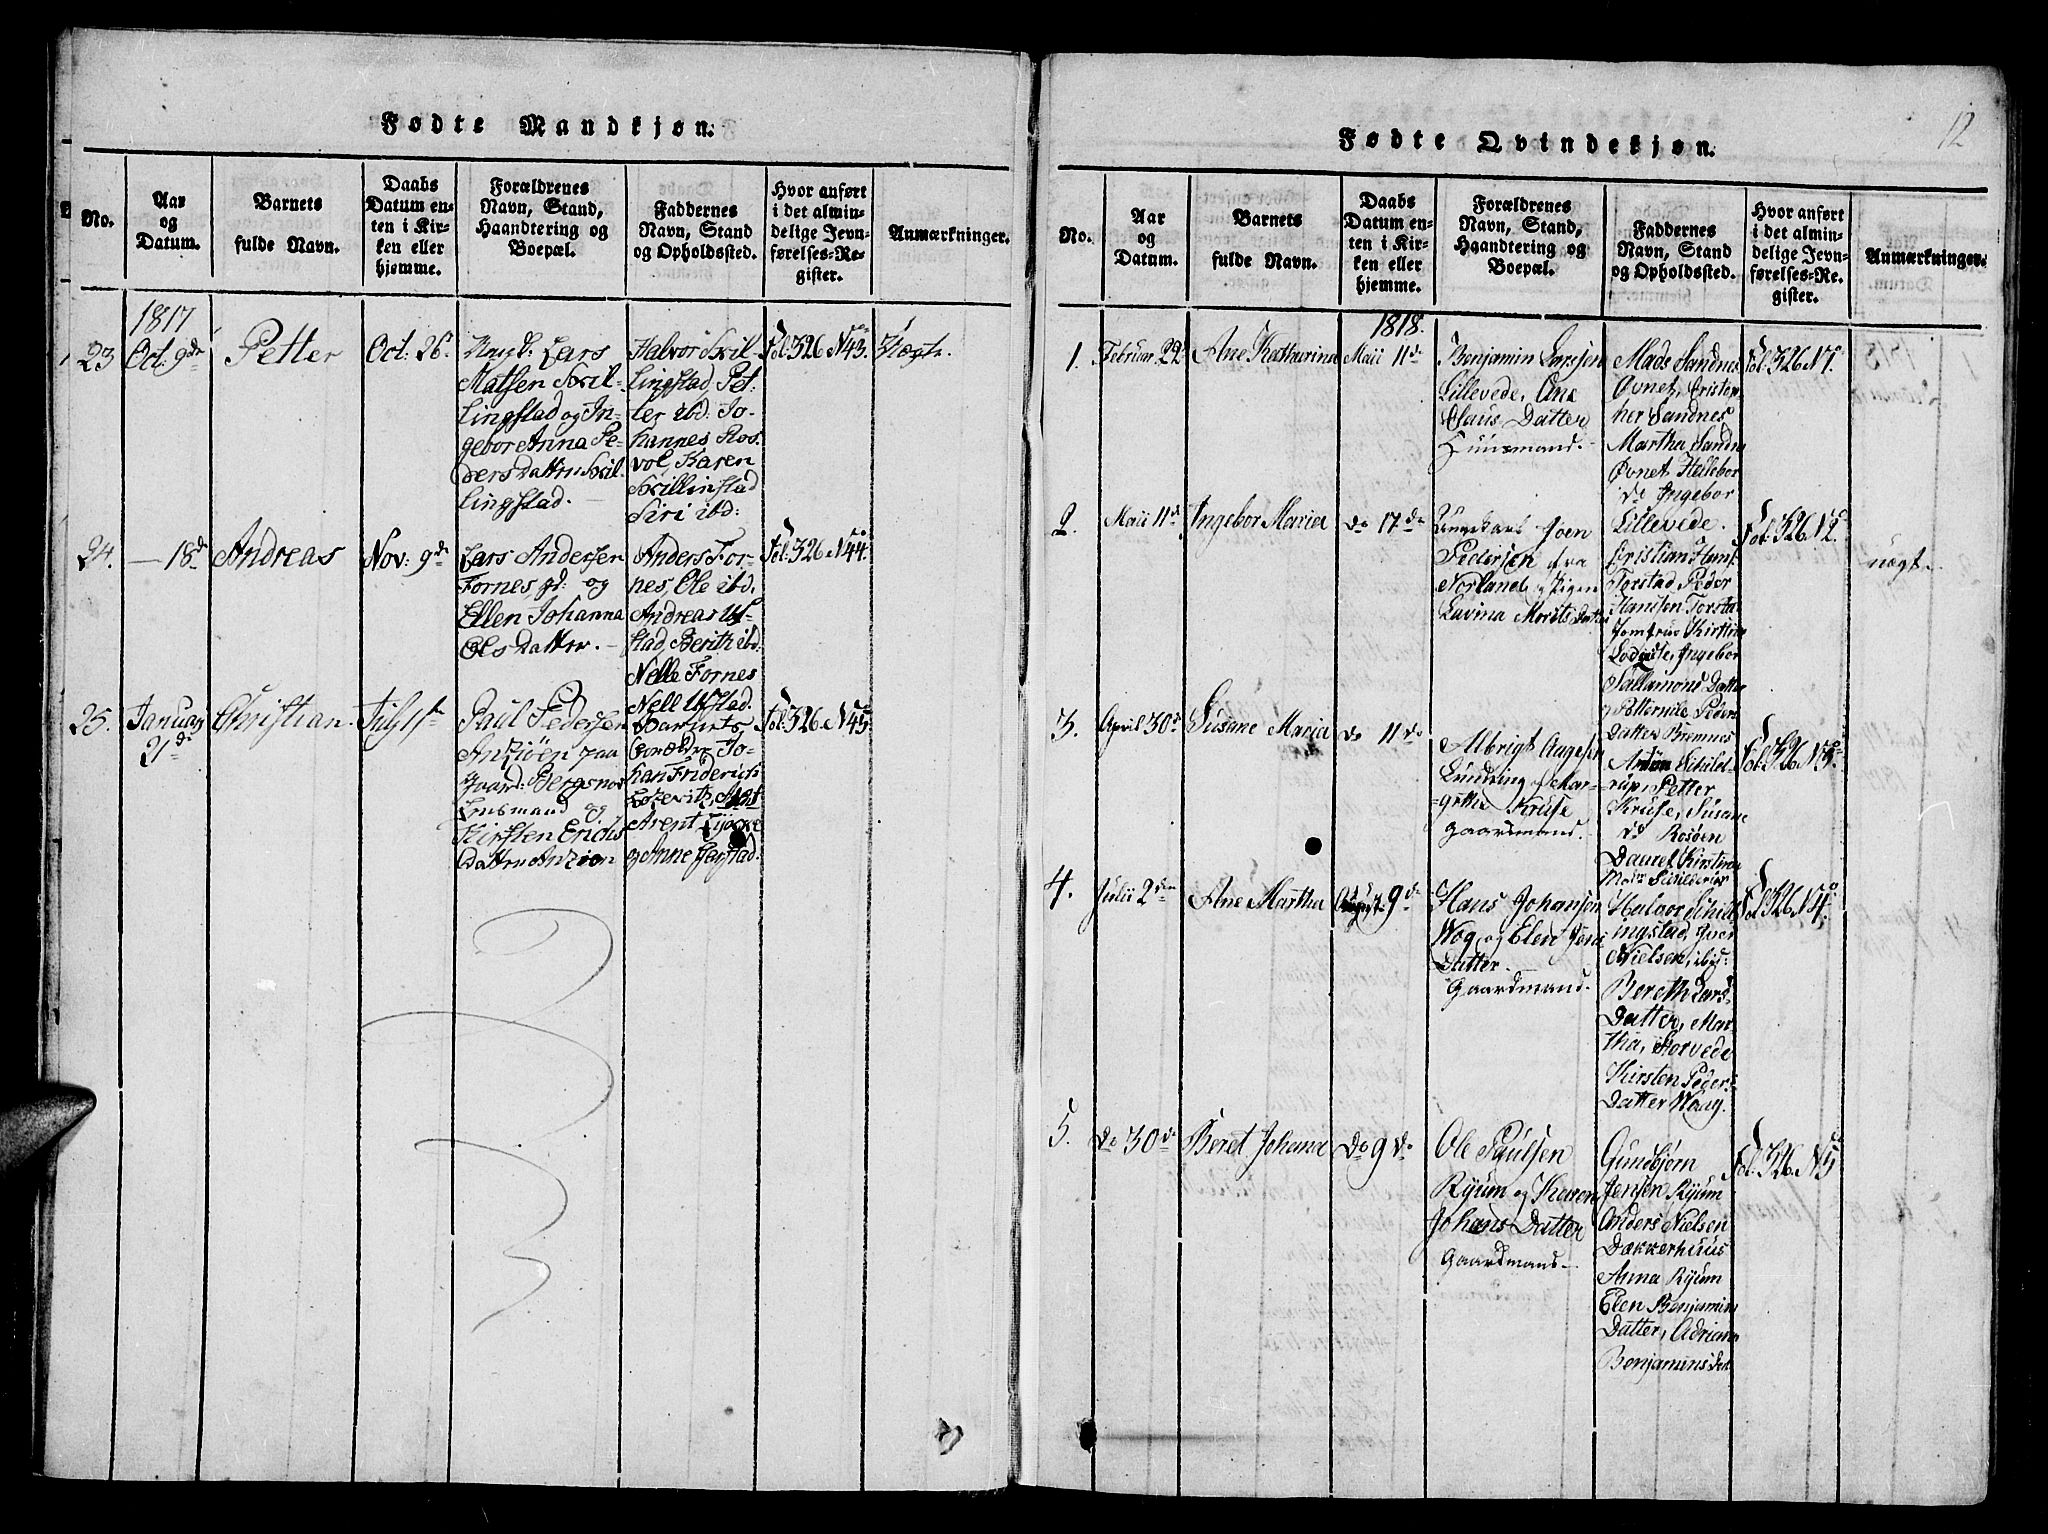 Fødte Mandkjøn.
No.
Aar
og
Datum.
Barnets
fulde Navn.
Daabs
Datum en-
ten i Kir-
ken eller
hjemme.
Forældrenes
Navn, Stand,
Haandtering og
Boepæl.
Faddernes
Navn, Stand
og Opholdssted.
Hvor anført
i det almin-
delige Jevn-
førelses-Re-
gister.
Anmærkninger.
23
1817
Oct: 9de
Petter
Oct: 26
Ungk: Lars
Matsen Skil-
lingstad og In-
gebor Anna Pe-
ders Datter Skil-
lingstad.
Halvor Skil-
lingstad, Pet-
ter ibd: Jo-
hannes Ros-
vol, Karen
Skillinstad
Siri ibd:
Fol: 326 N43.
24.
— 18de
Andreas
Nov: 9de
Lars Andersen
Fornes, gd: og
Ellen Johanna
Ols Datter. —
Anders For-
nes, Ole ibd.
Andreas Uf-
stad, Berith ibd:
Nelle Fornes
Nell Ufstad.
Fol: 326 N44.
25.
Januar
21de
Christian
Paul Pedersen
Anziøen paa
Gaard: Bergsnov
og
Kirsten
Datter Anzion
Barnets
Forældre Jo-
han Friderich
Arent
og Anne Hegstad.
Fol: 326 N45.
Fødte Qvindekjøn.
12
No.
Aar
og
Datum.
Barnets
fulde Navn.
Daabs
Datum en-
ten i Kir-
ken eller
hjemme.
Forældrenes
Navn, Stand,
Haandtering og
Boepæl.
Faddernes
Navn, Stand
og Opholdssted.
Hvor anført
i det almin-
delige Jevn-
førelses-Re-
gister.
Anmærkninger.
1.
Februar 22
Ane Katharina
1818.
Maii 11de
Benjamin Larssen
Lillevede, Ane
Claus Datter
Huusmand. —
Mads Sandnes
Øvnet, Cristop
her Sandnes
Martha Sandn
Øvnet Hellebor
do Ingebor
Lillevede.
Fol: 326 N1.
2.
Maii 11d
Ingebor Maria
do 17de
Ungkarl Joen
Pedersen fra
Norland og Pigen
Lavina Morits Datter
Cristian Hans
Torstad Peder
Hanssen Torsta
Jomfrue Kirstine
Ingebor
Sallamons Datter
og Petternile Peders
Datter Bremnes
Fol: 326. N2.
nægt.
3.
April 30d
Susane Maria
do 11do
Albrigt Aagesen
Lundring og Mar-
grethe Kruse
gaardmand.
Anton Schield-
rup Petter
Kruse, Susane
do Rosøen
Daurel Kirstine
Fol: 326 N3.
4.
Julii 2den
Ane Martha
August 9de
Hans Johansen
Wog og Elen Jens
Datter. —
Gaardmand.
Halvor Skill
ingstad, Iver
Nielsen, ibid:
Bereth Lars
Datter, Mar-
tha, Storvede
Kirsten Peders
Datter Waag.
Fol: 326 N4.
5.
do 30de
Beret Johana
do 9 do
Ole Paulsen
Ryum og Karen
Johans Datter
Gaardmand —
Gundbjørn
Jensen Ryum
Anders Nielsen
Dakkerhuus
Anna Ryum
Elen Benjamins
Datter, Adriane
Benjamins Dat
Fol: 326 N5